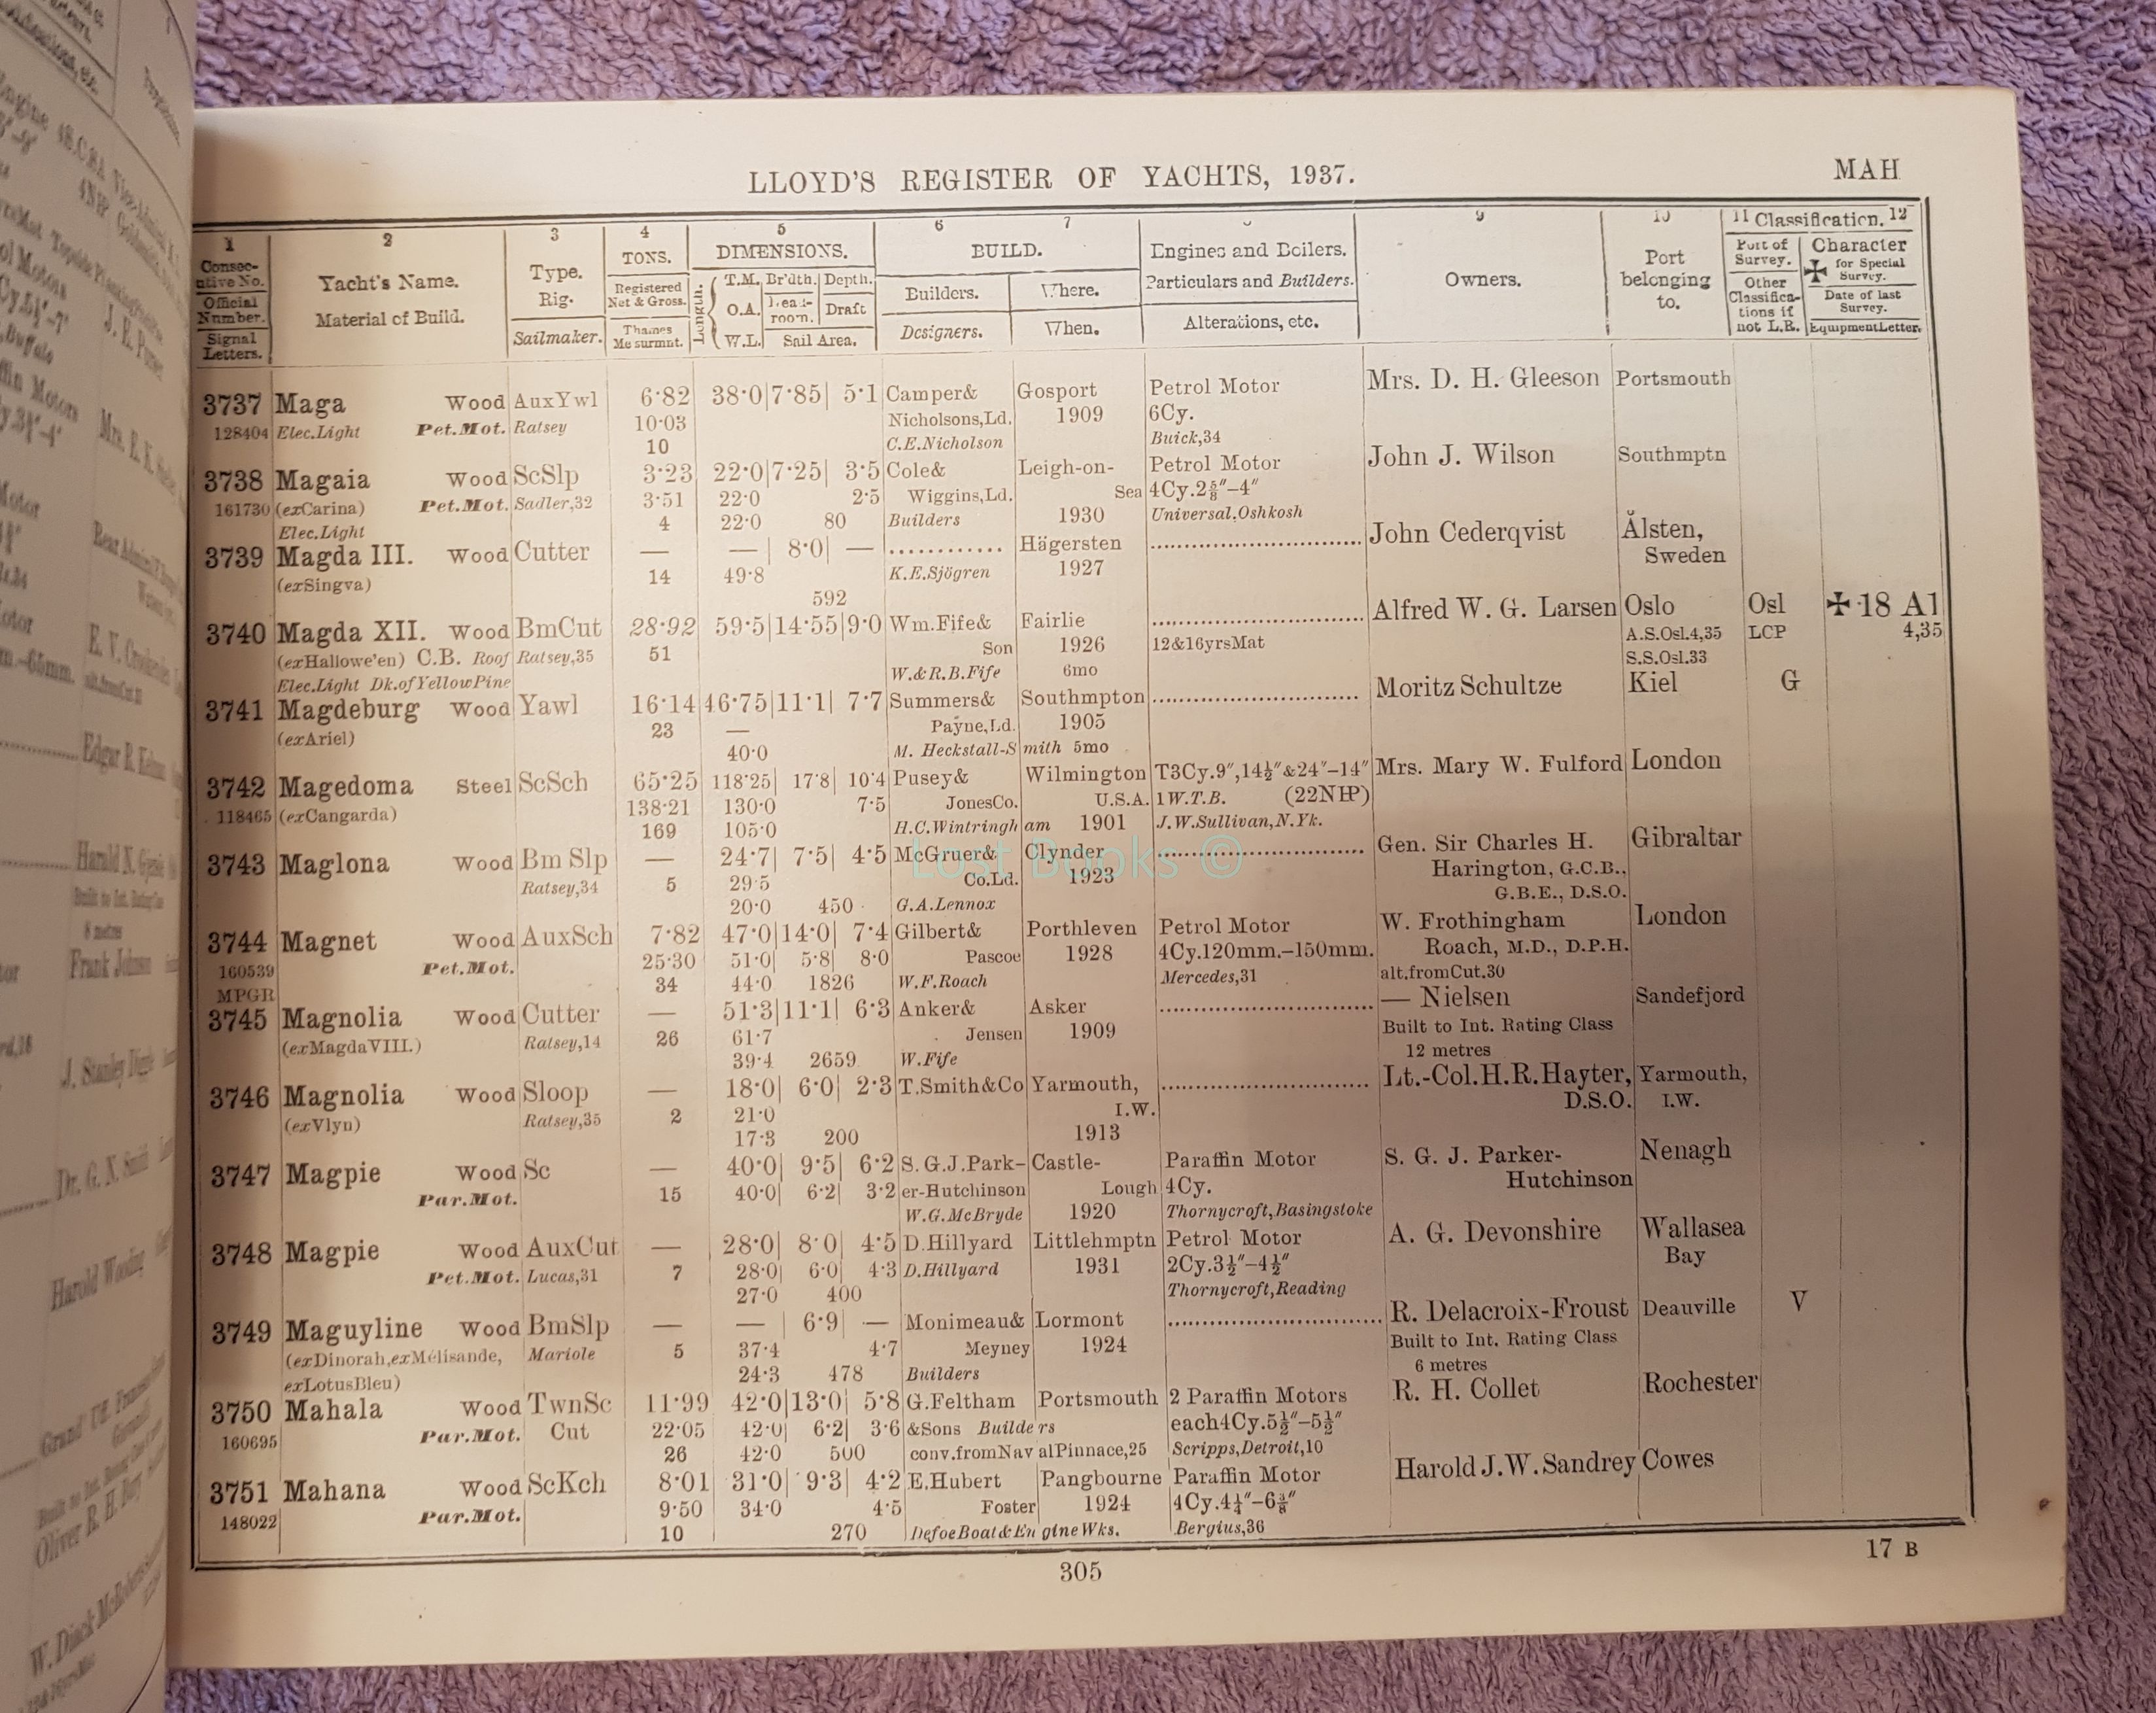 LLOYD'S REGISTER OF YACHTS, 1937.
MAH
1 2 3 4 5 6 7 9 10 11 Classification. 12
Consecutive No. Official Number. Signal Letters.
Yacht's Name. Material of Build.
Type. Rig. Sailmaker.
TONS. Registered Net & Gross. Thames Me surmnt.
DIMENSIONS. Length. T.M. O.A. W.L. Br'dth. Depth. Head-room. Draft Sail Area.
BUILD. Builders. Where. Designers. When.
Engines and Boilers. Particulars and Builders. Alterations, etc.
Owners.
Port belonging to.
Port of Survey. Other Classifications if not L.R.
Character ✠ for Special Survey. Date of last Survey. Equipment Letter.
3737 Maga Wood AuxYwl 6·82 38·0 7·85 5·1 Camper& Gosport Petrol Motor Mrs. D. H. Gleeson Portsmouth
128404 Elec.Light Pet.Mot. Ratsey 10·03 Nicholsons,Ld. 1909 6Cy.
10 C.E.Nicholson Buick,34
3738 Magaia Wood ScSlp 3·23 22·0 7·25 3·5 Cole& Leigh-on- Petrol Motor John J. Wilson Southmptn
161730 (exCarina) Pet.Mot. Sadler,32 3·51 22·0 2·5 Wiggins,Ld. Sea 4Cy.2⅝″–4″
Elec.Light 4 22·0 80 Builders 1930 Universal,Oshkosh
3739 Magda III. Wood Cutter — — 8·0 — ............ Hägersten .............................. John Cederqvist Ålsten,
(exSingva) 14 49·8 K.E.Sjögren 1927 Sweden
592
3740 Magda XII. Wood BmCut 28·92 59·5 14·55 9·0 Wm.Fife& Fairlie .............................. Alfred W. G. Larsen Oslo Osl ✠ 18 A1
(exHallowe'en) C.B. Roof Ratsey,35 51 Son 1926 12&16yrsMat A.S.Osl.4,35 LCP 4,35
Elec.Light Dk.ofYellowPine W.&R.B.Fife 6mo S.S.Osl.33
3741 Magdeburg Wood Yawl 16·14 46·75 11·1 7·7 Summers& Southmpton .............................. Moritz Schultze Kiel G
(exAriel) 23 — Payne,Ld. 1905
40·0 M. Heckstall-Smith 5mo
3742 Magedoma Steel ScSch 65·25 118·25 17·8 10·4 Pusey& Wilmington T3Cy.9″,14½″&24″–14″ Mrs. Mary W. Fulford London
118465 (exCangarda) 138·21 130·0 7·5 JonesCo. U.S.A. 1W.T.B. (22NHP)
169 105·0 H.C.Wintringham 1901 J.W.Sullivan,N.Yk.
3743 Maglona Wood Bm Slp — 24·7 7·5 4·5 McGruer& Clynder .............................. Gen. Sir Charles H. Gibraltar
Ratsey,34 5 29·5 Co.Ld. 1923 Harington, G.C.B.,
20·0 450 G.A.Lennox G.B.E., D.S.O.
Lost Books ©
3744 Magnet Wood AuxSch 7·82 47·0 14·0 7·4 Gilbert& Porthleven Petrol Motor W. Frothingham London
160539 Pet.Mot. 25·30 51·0 5·8 8·0 Pascoe 1928 4Cy.120mm.–150mm. Roach, M.D., D.P.H.
MPGR 34 44·0 1826 W.F.Roach Mercedes,31 alt.fromCut.30
3745 Magnolia Wood Cutter — 51·3 11·1 6·3 Anker& Asker .............................. — Nielsen Sandefjord
(exMagdaVIII.) Ratsey,14 26 61·7 Jensen 1909 Built to Int. Rating Class
39·4 2659 W.Fife 12 metres
3746 Magnolia Wood Sloop — 18·0 6·0 2·3 T.Smith&Co Yarmouth, .............................. Lt.-Col.H.R.Hayter, Yarmouth,
(exVlyn) Ratsey,35 2 21·0 I.W. D.S.O. I.W.
17·3 200 1913
3747 Magpie Wood Sc — 40·0 9·5 6·2 S.G.J.Park- Castle- Paraffin Motor S. G. J. Parker- Nenagh
Par.Mot. 15 40·0 6·2 3·2 er-Hutchinson Lough 4Cy. Hutchinson
W.G.McBryde 1920 Thornycroft,Basingstoke
3748 Magpie Wood AuxCut — 28·0 8·0 4·5 D.Hillyard Littlehmptn Petrol Motor A. G. Devonshire Wallasea
Pet.Mot. Lucas,31 7 28·0 6·0 4·3 D.Hillyard 1931 2Cy.3½″–4½″ Bay
27·0 400 Thornycroft,Reading
3749 Maguyline Wood BmSlp — — 6·9 — Monimeau& Lormont .............................. R. Delacroix-Froust Deauville V
(exDinorah,exMélisande, Mariole 5 37·4 4·7 Meyney 1924 Built to Int. Rating Class
exLotusBleu) 24·3 478 Builders 6 metres
3750 Mahala Wood TwnSc 11·99 42·0 13·0 5·8 G.Feltham Portsmouth 2 Paraffin Motors R. H. Collet Rochester
160695 Par.Mot. Cut 22·05 42·0 6·2 3·6 &Sons Builders each4Cy.5½″–5½″
26 42·0 500 conv.fromNavalPinnace,25 Scripps,Detroit,10
3751 Mahana Wood ScKch 8·01 31·0 9·3 4·2 E.Hubert Pangbourne Paraffin Motor Harold J.W.Sandrey Cowes
148022 Par.Mot. 9·50 34·0 4·5 Foster 1924 4Cy.4¼″–6⅜″
10 270 DefoeBoat&EngineWks. Bergius,36
305
17 B